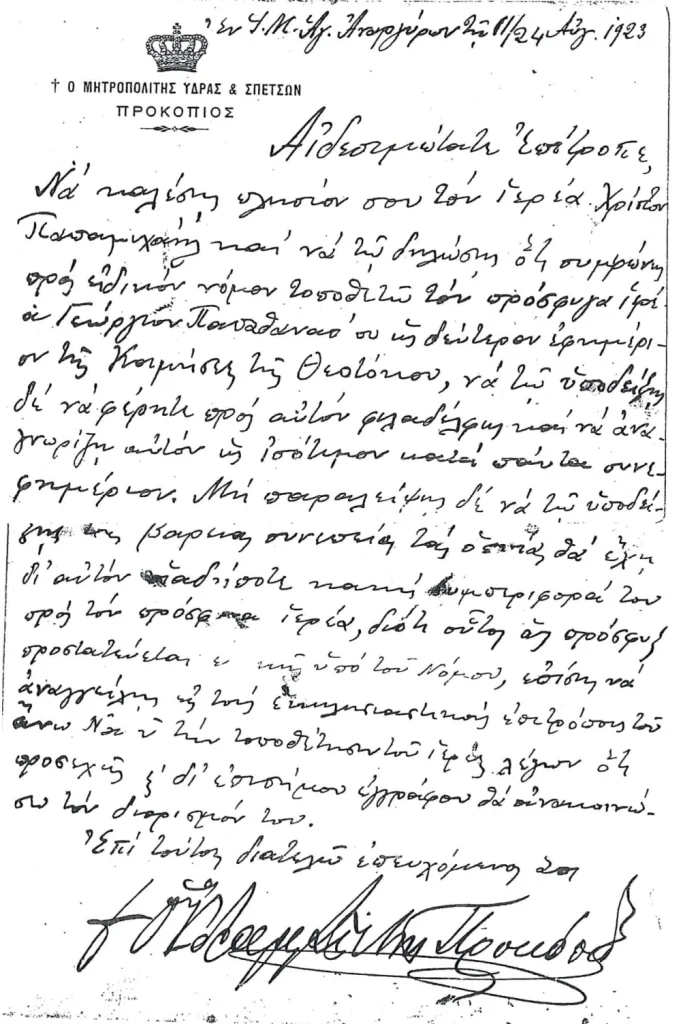 Ἐν Ἱ. Μ. Ἁγ. Ἀναργύρων τῇ 11/24 Αὐγ. 1923
† Ο ΜΗΤΡΟΠΟΛΙΤΗΣ ΥΔΡΑΣ & ΣΠΕΤΣΩΝ
ΠΡΟΚΟΠΙΟΣ
Αἰδεσιμώτατε Ἐπίτροπε,
Νά καλέσῃς πλησίον σου τόν ἱερέα Χρίστον
Παπαμιχαήλ καί νά τῷ δηλώσῃς ὅτι συμφώνως
πρός εἰδικόν νόμον τοποθετῶ τόν πρόσφυγα ἱερέ-
α Γεώργιον Παπαθανασίου ὡς δεύτερον ἐφημέρι-
ον τῆς Κοιμήσεως τῆς Θεοτόκου, νά τῷ ὑποδείξῃς
δέ νά φέρηται πρός αὐτόν φιλαδέλφως καί νά ἀνα-
γνωρίζῃ αὐτόν ὡς ἰσότιμον κατά πάντα συνε-
φημέριον. Μή παραλείψῃς δέ νά τῷ ὑποδεί-
ξῃς τάς βαρείας συνεπείας τάς ὁποίας θά ἔχῃ
δι' αὐτόν οἱαδήποτε κακή συμπεριφορά του
πρός τόν πρόσφυγα ἱερέα, διότι οὗτος ὡς πρόσφυξ
προστατεύεται ὑπό τοῦ Νόμου, ἐπίσης νά
ἀναγγείλῃς εἰς τούς ἐκκλησιαστικούς ἐπιτρόπους τοῦ
ἄνω Ναοῦ τήν τοποθέτησιν τοῦ ἱερέως λέγων ὅτι
προσεχῶς δι' ἐπισήμου ἐγγράφου θά ἀνακοινώ-
σω τόν διορισμόν του.
Ἐπί τούτοις διατελῶ ἐπευχόμενός σοι
† Ὁ Προκόπιος